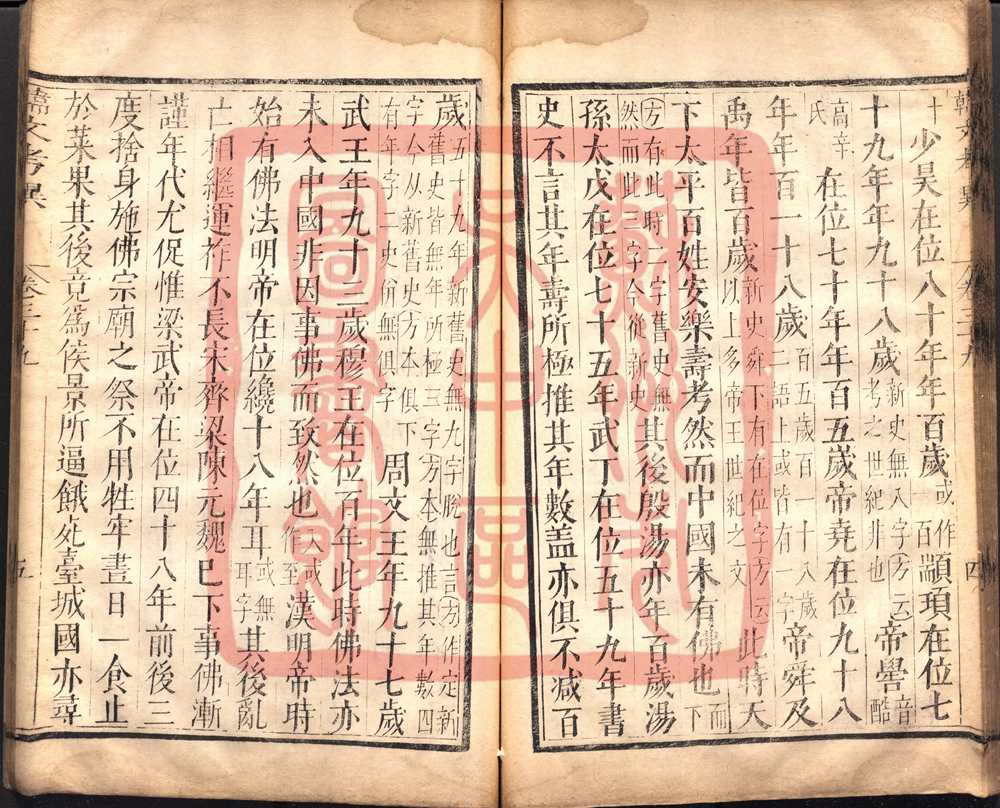 韓文考異 卷三十九 四
十少昊在位八十年年百歲或作百顓頊在位七
十九年年九十八歲新史無八字方云考之世紀非也帝嚳音酷
高辛氏在位七十年年百五歲帝堯在位九十八
年年百一十八歲百五歲百一十八歲二語上或皆有一字帝舜及
禹年皆百歲新史舜下有在位字方云以上多帝王世紀之文此時天
下太平百姓安樂壽考然而中國未有佛也而下
方有此時二字舊史無然而此三字今從新史其後殷湯亦年百歲湯
孫太戊在位七十五年武丁在位五十九年書
史不言其年壽所極推其年數盖亦俱不减百
歲五十九年新舊史無九字脫也言方作定新舊史皆無年所極三字方本無推其年數四
字今从新舊史方本俱下有年字二史併無俱字周文王年九十七歲
武王年九十三歲穆王在位百年此時佛法亦
未入中國非因事佛而致然也入或作至漢明帝時
始有佛法明帝在位纔十八年耳或無耳字其後亂
亡相繼運祚不長宋齊梁陳元魏巳下事佛漸
謹年代尤促惟梁武帝在位四十八年前後三
度捨身施佛宗廟之祭不用牲牢晝日一食止
於菜果其後竟爲侯景所逼餓死臺城國亦尋
韓文考異 卷三十九 五
蘇州市
吳中區
圖書館